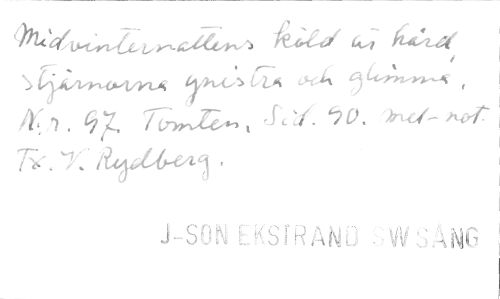 Midvinternattens köld är hård,
stjärnorna gnistra och glimma,
N.r. 97. Tomten, Sid. 90. met-not.
Tx. V. Rydberg.
J-SON EKSTRAND SW SÅNG